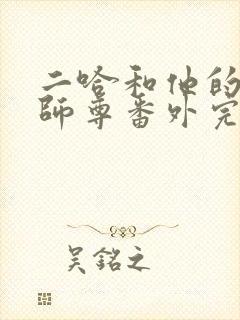 二哈和他的
師尊番外完
吳銘之